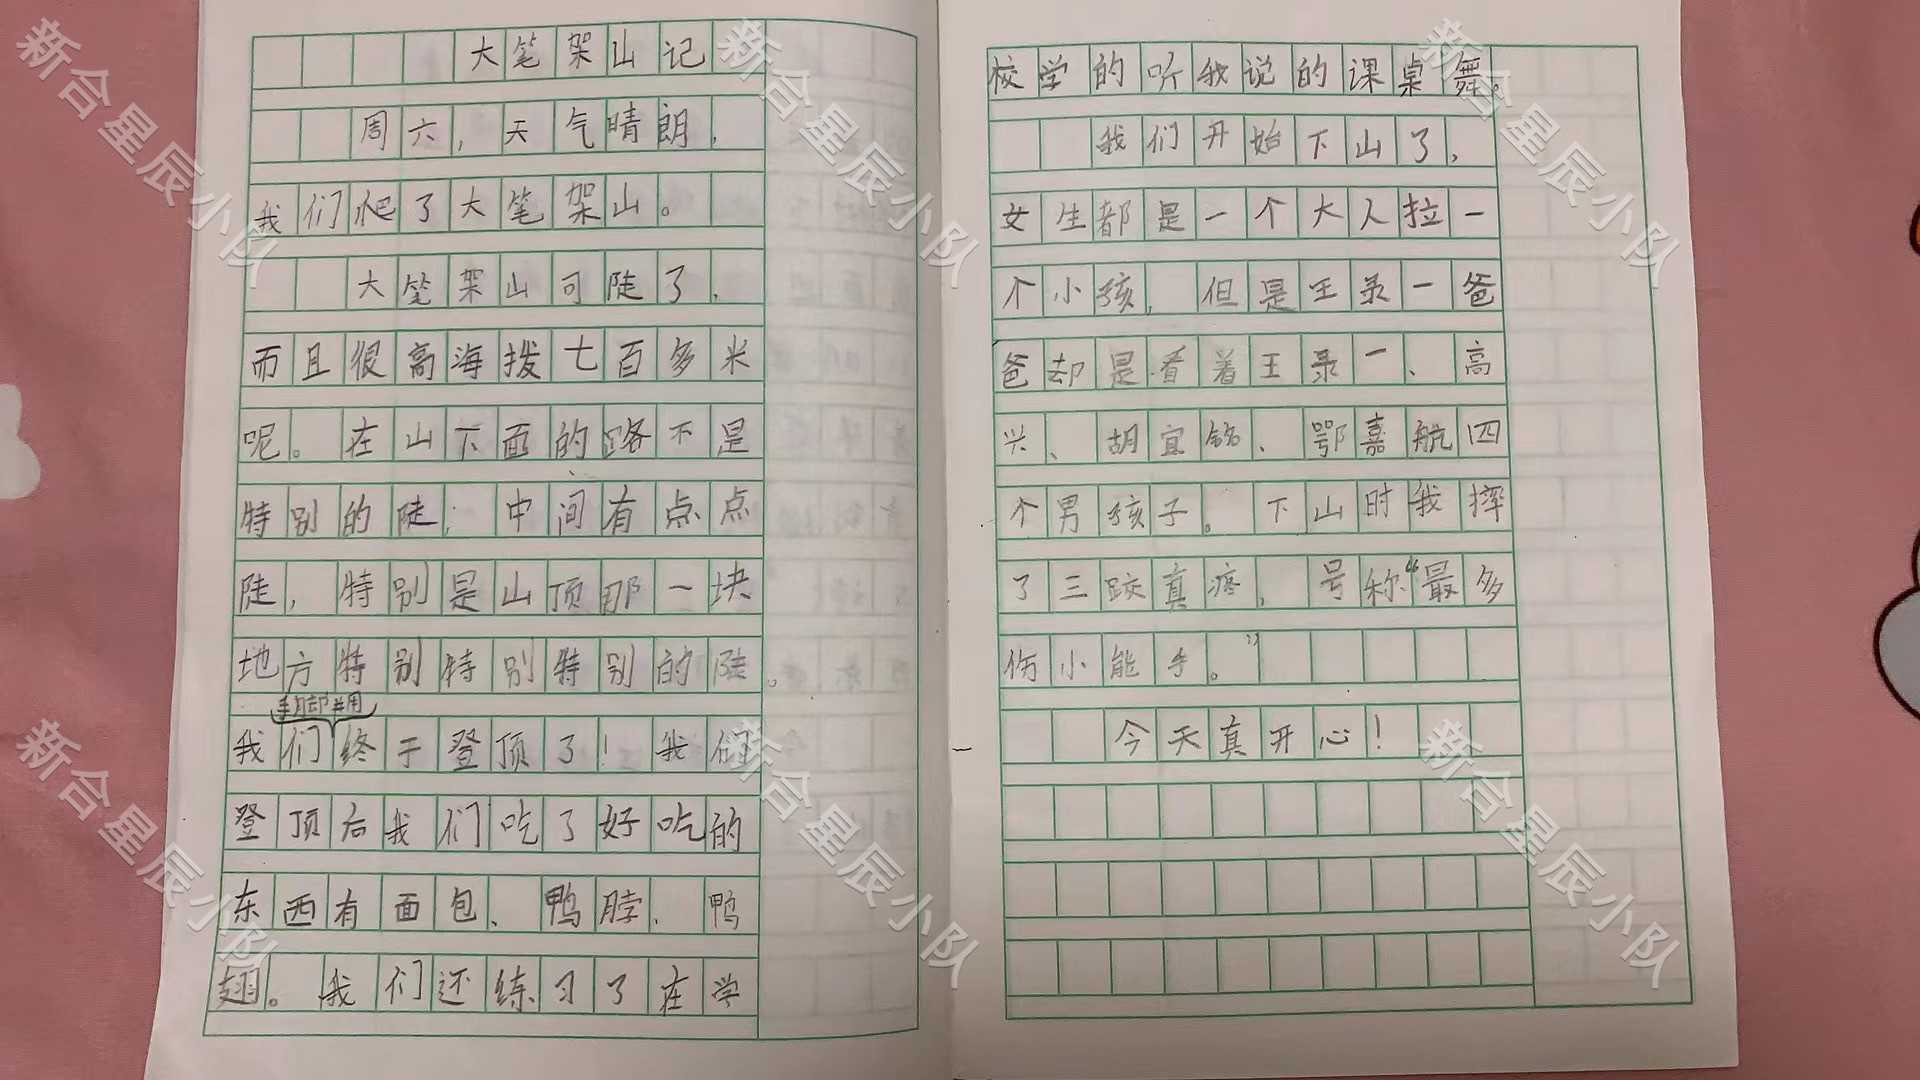 大笔架山记
周六，天气晴朗，
我们爬了大笔架山。
大笔架山可陡了，
而且很高海拨七百多米
呢。在山下面的路不是
特别的陡；中间有点点
陡，特别是山顶那一块
地方特别特别特别的陡。
手脚并用
我们终于登顶了！我们
登顶后我们吃了好吃的
东西有面包、鸭脖、鸭
翅。我们还练习了在学
校学的听我说的课桌舞。
我们开始下山了，
女生都是一个大人拉一
个小孩，但是王录一爸
爸却是看着王录一、高
兴、胡宜铭、鄂嘉航四
个男孩子。下山时我摔
了三跤真疼，号称“最多
伤小能手。”
今天真开心！
新合星辰小队
新合星辰小队
新合星辰小队
新合星辰小队
新合星辰小队
新合星辰小队